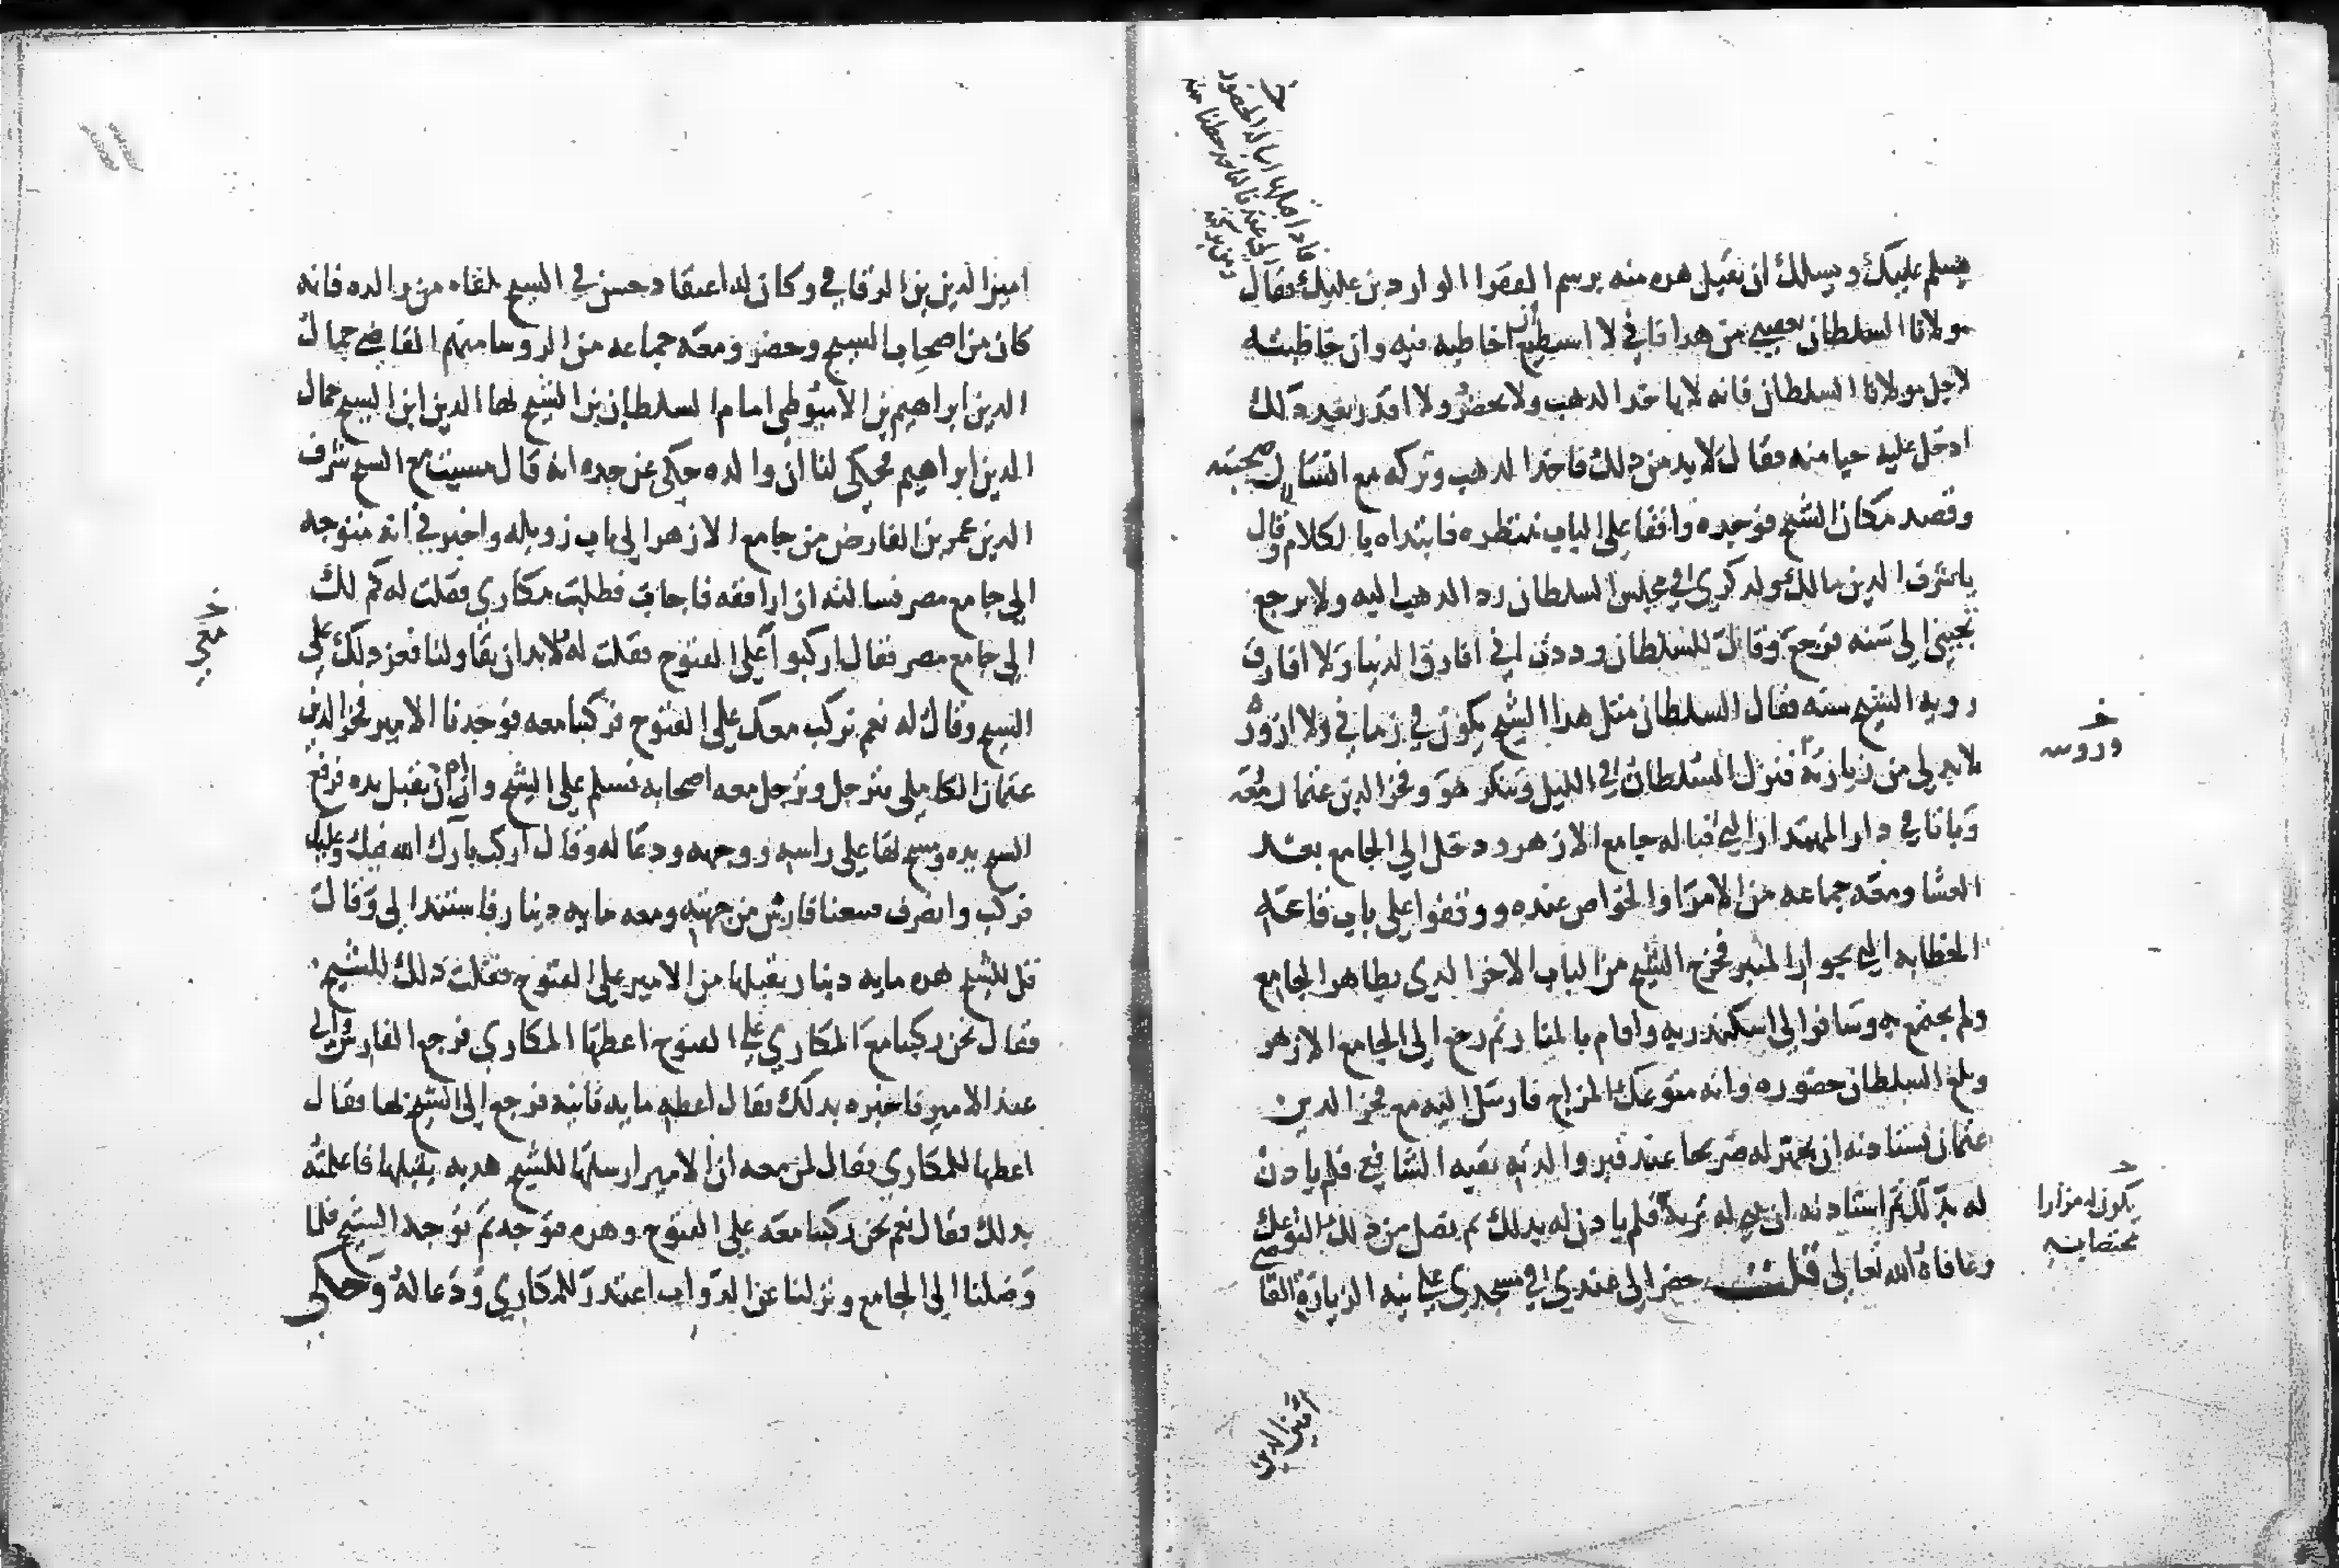 خ
فاذا قبلها اساله الحضور
الى عندنا لناخد حظنا منه
ومن بركته
يسلم عليك ويسلك ان تقبل هده منه برسم الفقرا الواردين عليك فقال
مولانا السلطان يعفيني من هدا فاني لا اسطيع ان اخاطبه فيه وان خاطبته
لاجل مولانا السلطان فانه لا ياخد الدهب ولا يحضر ولا اقدر بعد دلك
ادخل عليه حيا منه فقال لا بد من دلك فاخد الدهب وتركه مع انسان صحبته
وقصد مكان الشيخ فوجده واقفا على الباب ينتظره فابتداه بالكلام وقال
يا شرف الدين مالك ولدكري في مجلس السلطان رد الدهب اليه ولا ترجع
تجيني الى سنه فرجع وقال للسلطان وددت اني افارق الدنيا ولا افارق
رويه الشيخ سنه فقال السلطان مثل هدا الشيخ يكون في زماني ولا ازوره
لا بد لي من زيارته فنزل السلطان في الليل وتنكر هو وفخر الدين عثمان معه
وباتا في دار المهمندار التي قباله جامع الازهر ودخل الى الجامع بعد
العشا ومعه جماعه من الامرا والخواص عنده ووقفوا على باب قاعه
الخطابه التي بجوار المنبر فخرج الشيخ من الباب الاخر الدي بظاهر الجامع
ولم يجتمع به وسافر الى اسكندريه واقام بالمنار ثم رجع الى الجامع الازهر
وبلغ السلطان حضوره وانه متوعك المزاج فارسل اليه مع فخر الدين
عثمان يستادنه ان يجهز له ضريحا عند قبر والدته بقبه الشافعي فلم يادن
له بدلك ثم استادنه ان يبني له تربه فلم يادن له بدلك ثم نصل من دلك التوعك
وعافاه الله تعالى قلت حضر الى عندي في مسجدي على نيه الزياره القاضي
خ
ورويته
خ
يكون له مزارا
يختص به
امين الدين
امين الدين بن الرقاقي وكان له اعتقاد حسن في الشيخ تلقاه من والده فانه
كان من اصحاب الشيخ وحضر ومعه جماعه من الروسا منهم القاضي جمال
الدين ابراهيم بن الاسيوطي امام السلطان بن الشيخ بها الدين ابن الشيخ جمال
الدين ابراهيم فحكى لنا ان والده حكى عن جده انه قال مسيت مع الشيخ شرف
الدين عمر بن الفارض من جامع الازهر الى باب زويله واخبرني انه متوجه
الى جامع مصر فسالته ان ارافقه فاجاب فطلبت مكاري فقلت له كم لك
الى جامع مصر فقال اركبوا على الفتوح فقلت له لا بد ان تقاولنا فعز دلك على
الشيخ وقال له نعم نركب معك على الفتوح فركبنا معه فوجدنا الامير فخر الدين
عثمان الكاملي فترجل وترجل معه اصحابه فسلم على الشيخ واراد ان يقبل يده فرفع
الشيخ يده ومسح بها على راسه ووجهه ودعا له وقال اركب بارك الله فيك وعليك
فركب وانصرف فتبعنا فارس من جهته ومعه مايه دينار فاستند الى وقال
قل للشيخ هده مايه دينار يقبلها من الامير على الفتوح فقلت دلك للشيخ
فقال نحن ركبنا مع المكاري على الفتوح اعطها المكاري فرجع الفارس الى
عند الامير فاخبره بدلك فقال اعطه مايه ثانيه فرجع الى الشيخ بها فقال
اعطها للمكاري فقال لمن معه ان الامير ارسلها للشيخ هديه يقبلها فاعلمته
بدلك فقال نعم نحن ركبنا معه على الفتوح وهده فتوحه ثم توجه الشيخ فلما
وصلنا الى الجامع ونزلنا عن الدواب اعتدر للمكاري ودعا له وحكى
خ
معي